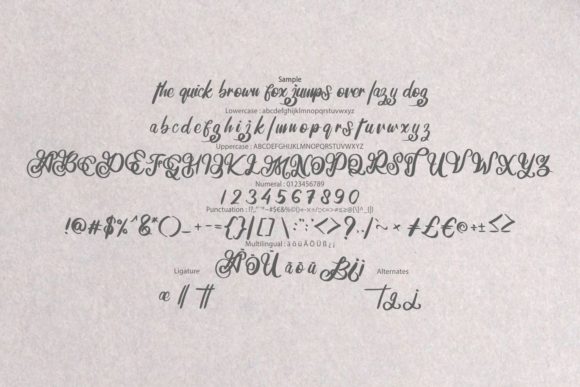 Sample
the quick brown fox jumps over lazy dog
Lowercase : abcdefghijklmnopqrstuvwxyz
abcdefghijklmnopqrstuvwxyz
Uppercase : ABCDEFGHIJKLMNOPQRSTUVWXYZ
ABCDEFGHIJKLMNOPQRSTUVWXYZ
Numeral : 0123456789
1234567890
Punctuation :
!@#$%^&*()_+-={}|[]\:";'<>?,./
Multilingual : ä ö ü Ä Ö Ü ß ¿ ¡
Ä Ö Ü ä ö ü ß ¿ ¡
Ligature
æ ll tt
Alternates
T g j